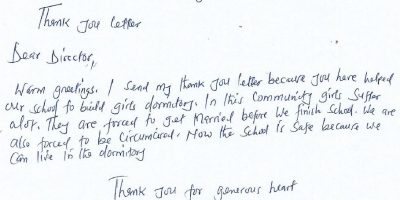 Thank you letter
Dear Director,
Warm greetings. I send my thank you letter because you have helped
our school to build girls dormitory. In this Community girls Suffer
alot. They are forced to get Married before we finish School. We are
also forced to be Circumcised. Now the School is Safe because we
Can live in the dormitory
Thank you for generous heart